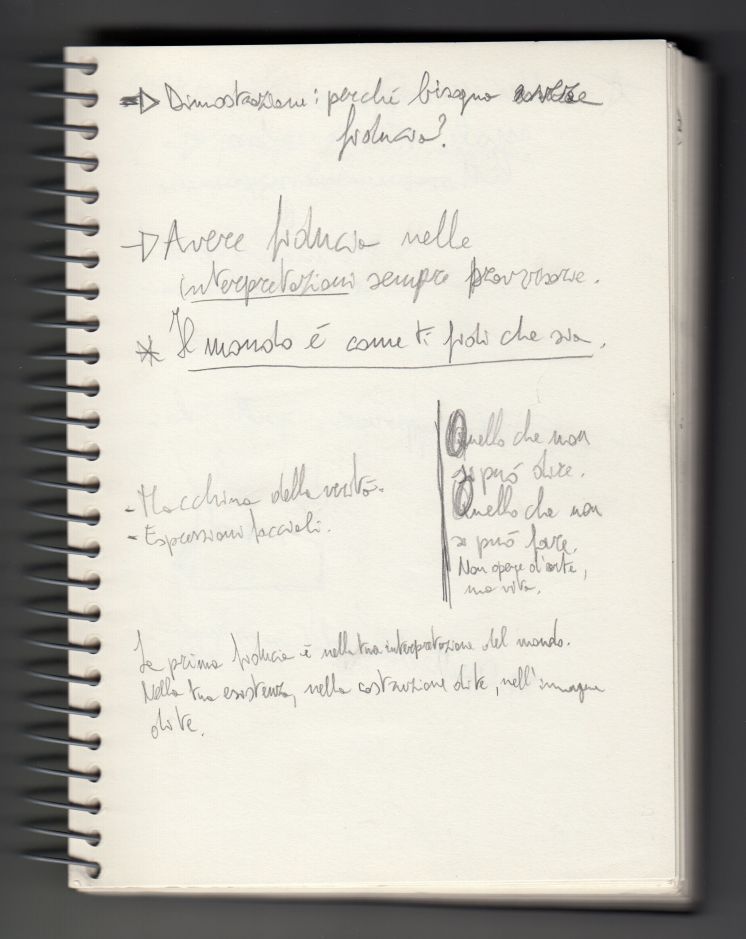 Dimostrazione: perché bisogna avere
fiducia?
Avere fiducia nelle
interpretazioni sempre provvisorie.
* Il mondo é come ti fidi che sia.
Quello che non
si può dire.
Quello che non
si può fare.
Non opere d'arte,
ma vita.
- Macchina della verità.
- Espressioni facciali.
La prima fiducia è nella tua interpretazione del mondo.
Nella tua esistenza, nella costruzione di te, nell'immagine
di te.